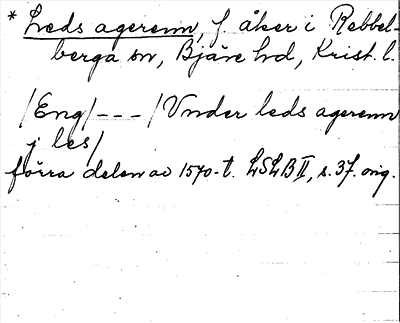 * Leds agerenn, f åker i Rebbel-
berga sn, Bjäre hd, Krist. l.
/Eng/ - - - /Vnder leds agerenn
j les/
förra delen av 1570-t. LSLB II, s. 37. orig.